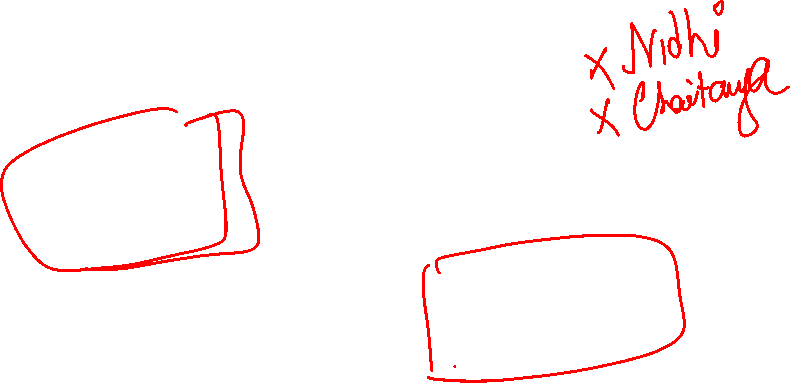 x Nidhi
x Chaitanya